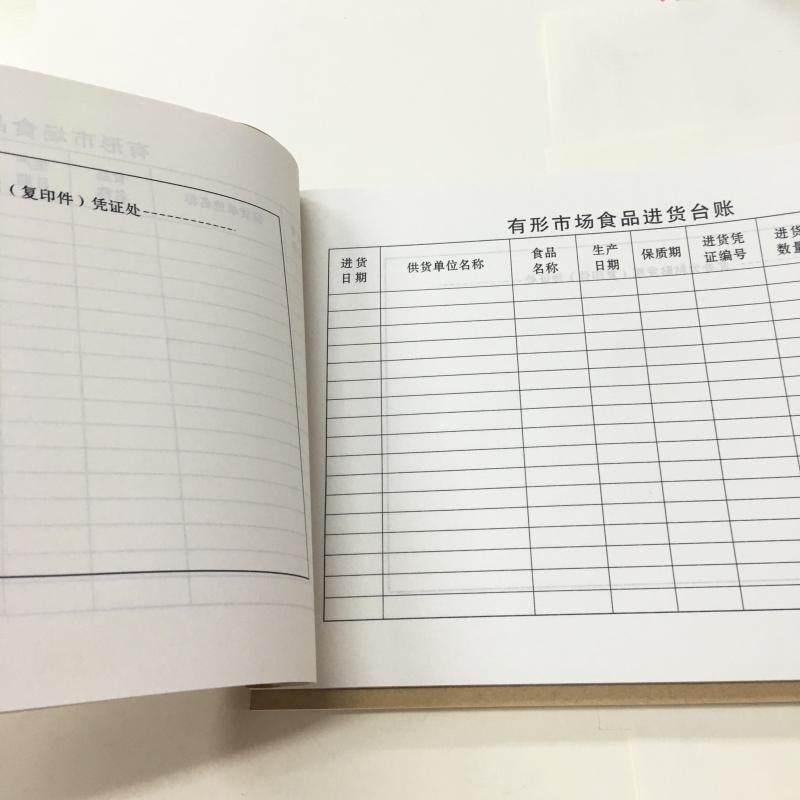 （复印件）凭证处
有形市场食品进货台账
进货
日期
供货单位名称
食品
名称
生产
日期
保质期
进货凭
证编号
进货
数量